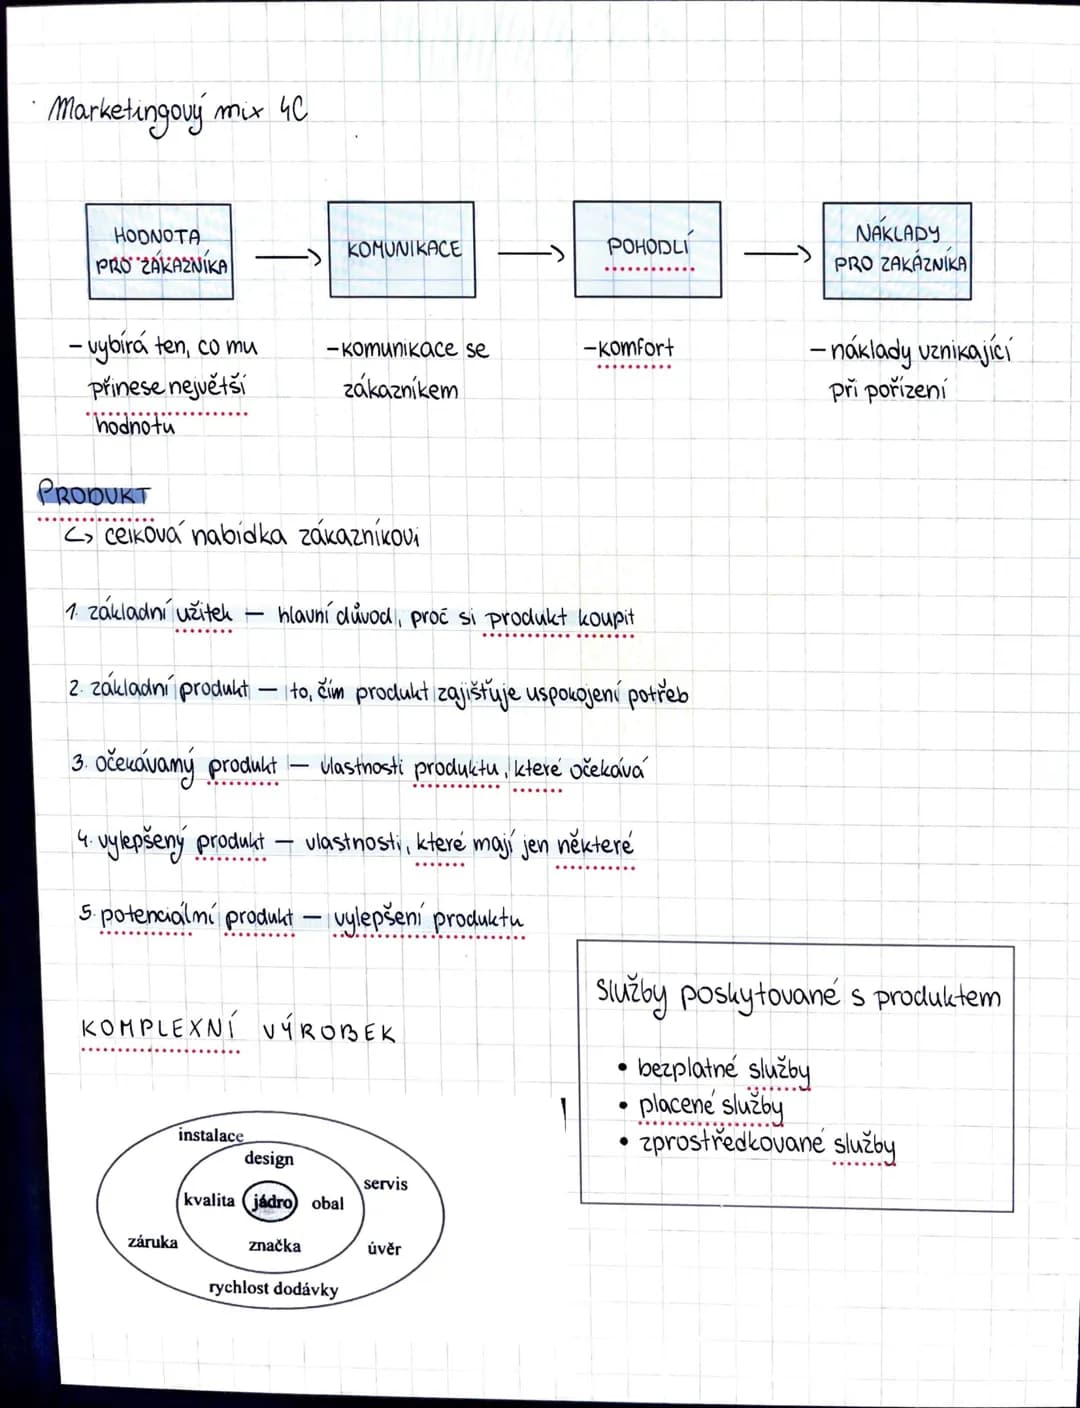 Marketingový mix 4C
HODNOTA
PRO ZÁKAZNÍKA
KOMUNIKACE
POHODLÍ
NÁKLADY
PRO ZAKÁZNÍKA
- vybírá ten, co mu
přinese největší
hodnotu
- komunikace se
zákazníkem
- komfort
- náklady vznikající
při pořízení
PRODUKT
↳ celková nabídka zákazníkovi
1. základní užitek – hlavní důvod, proč si produkt koupit
2. základní produkt – to, čím produkt zajišťuje uspokojení potřeb
3. očekávaný produkt – vlastnosti produktu, které očekává
4. vylepšený produkt – vlastnosti, které mají jen některé
5. potenciální produkt – vylepšení produktu
KOMPLEXNÍ VÝROBEK
Služby poskytované s produktem
• bezplatné služby
• placené služby
• zprostředkované služby
instalace
design
servis
kvalita jádro obal
záruka
značka
úvěr
rychlost dodávky